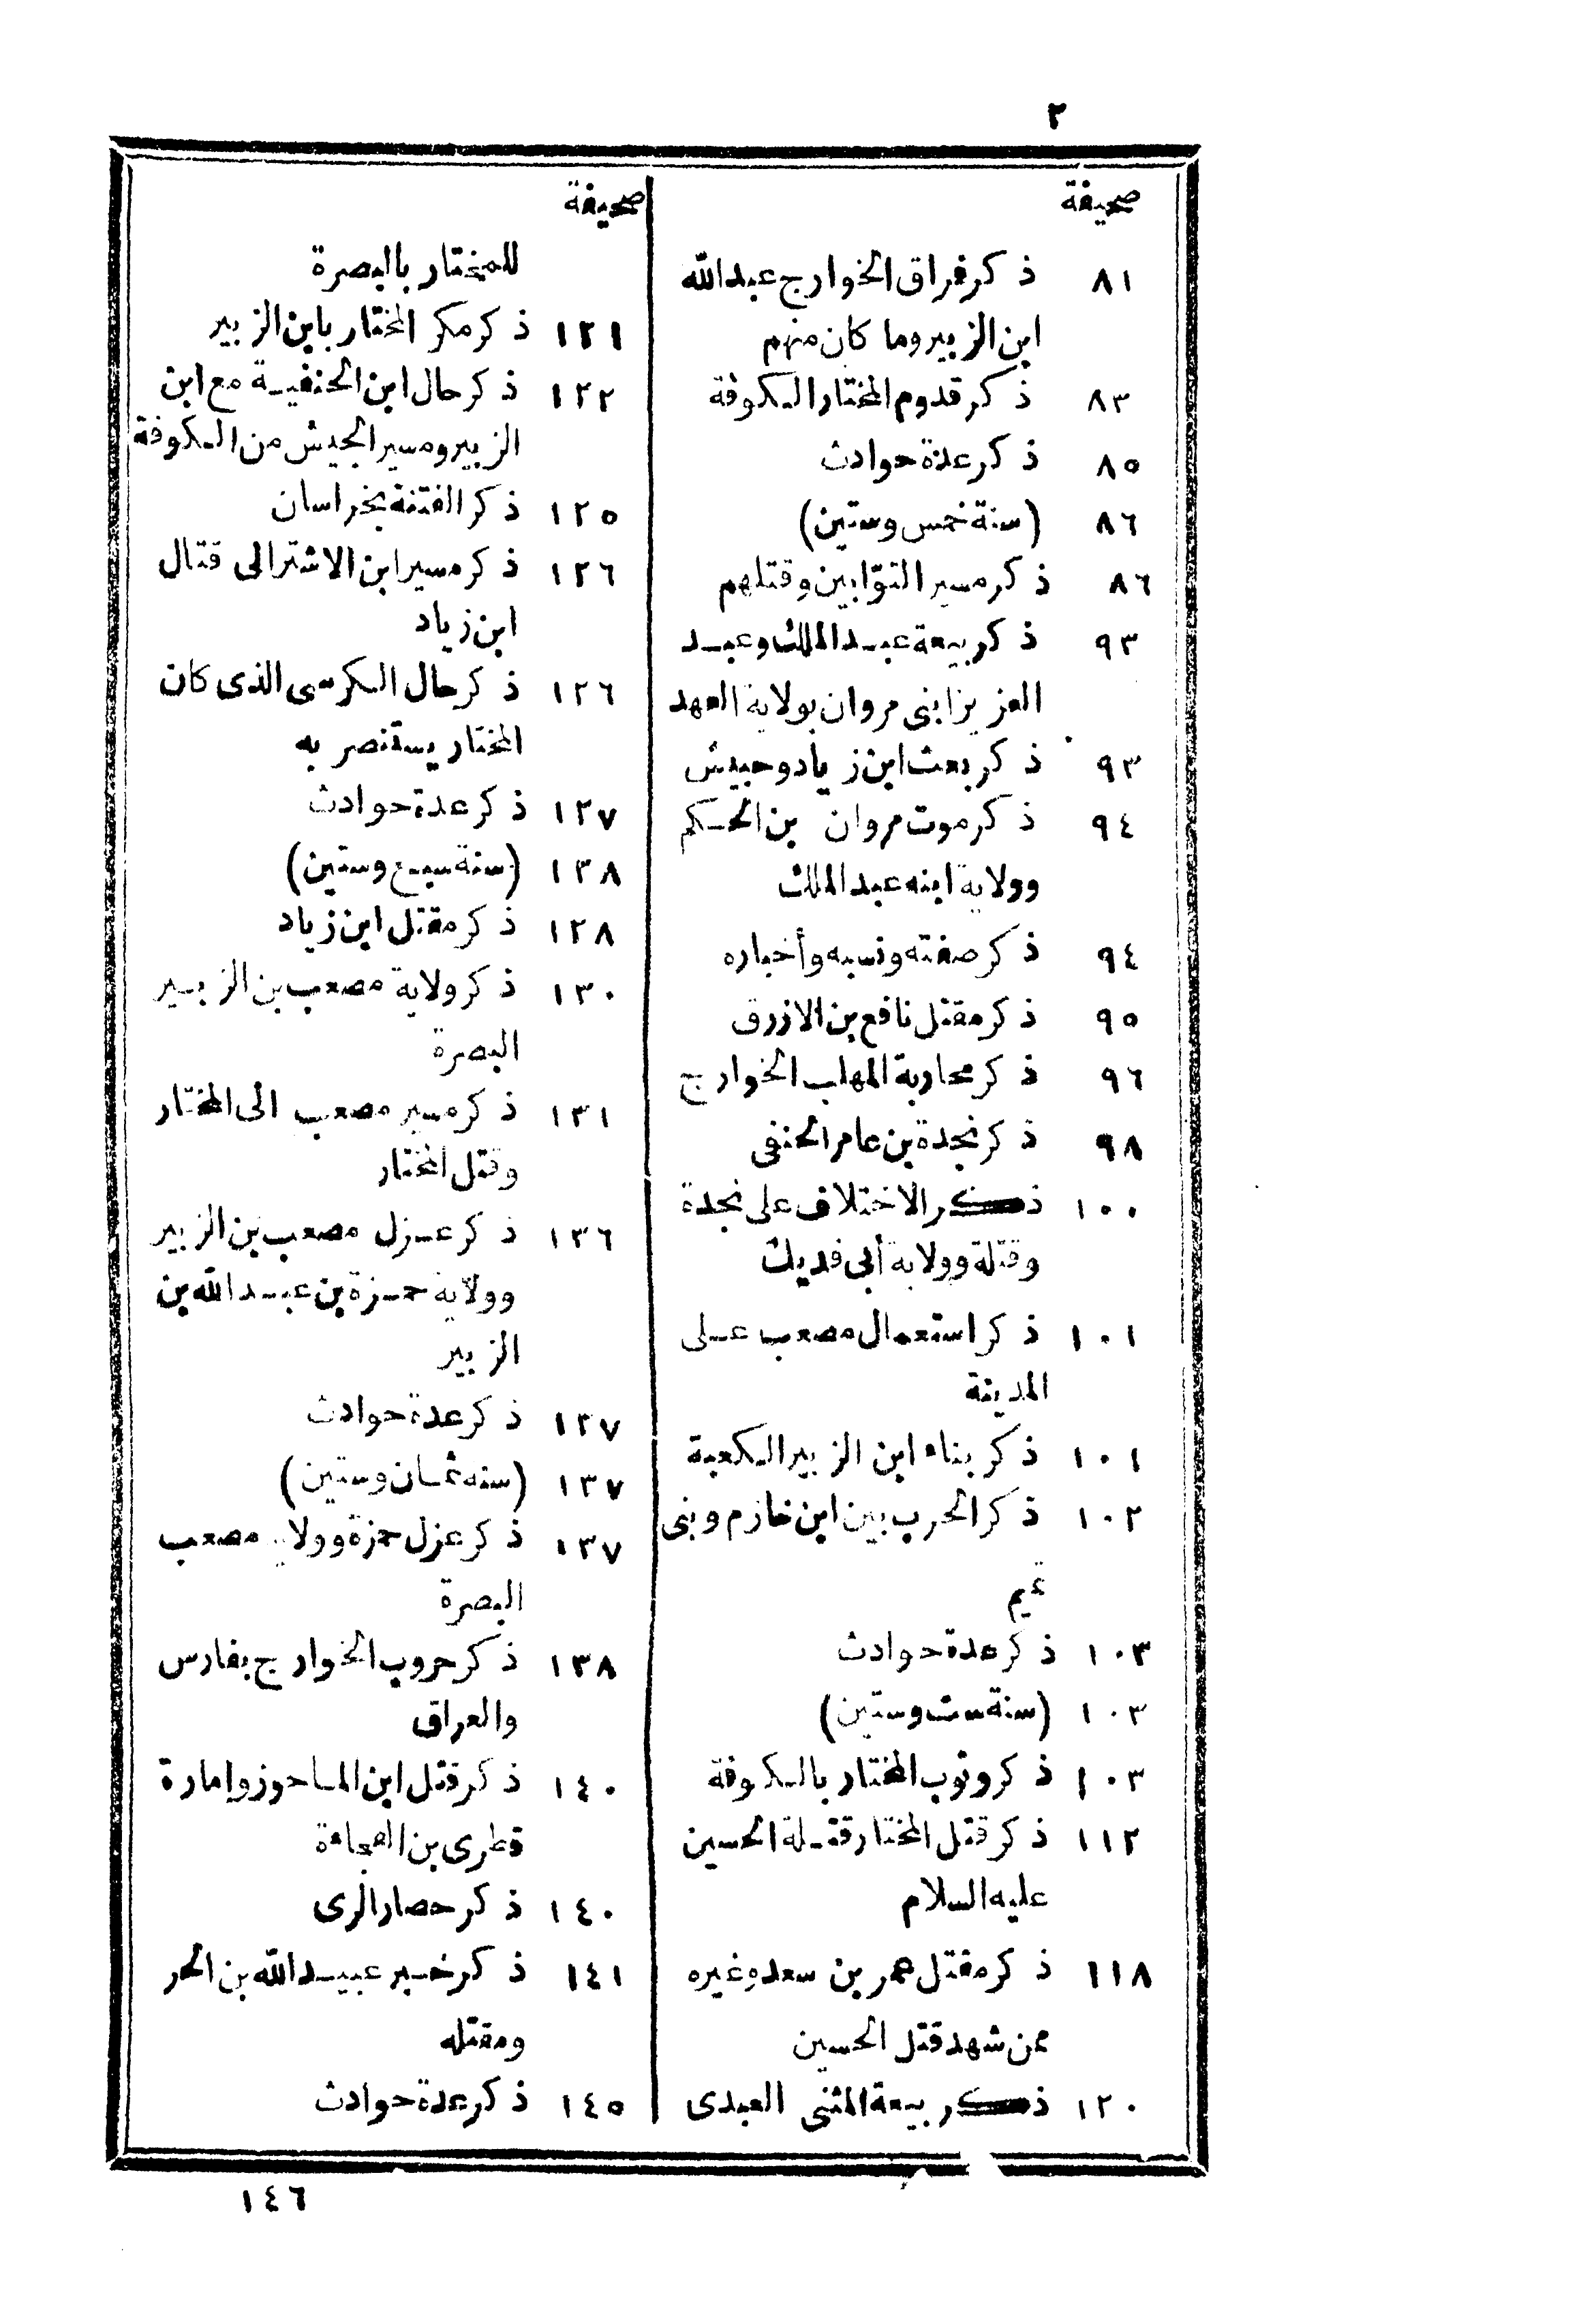 ٢
صحيفة
٨١ ذكر فراق الخوارج عبد الله
ابن الزبير وما كان منهم
٨٣ ذكر قدوم المختار الكوفة
٨٥ ذكر عدة حوادث
٨٦ (سنة خمس وستين)
٨٦ ذكر مسير التوّابين وقتلهم
٩٣ ذكر بيعة عبد الملك وعبد
العزيز ابنى مروان بولاية العهد
٩٣ ذكر بعث ابن زياد وحبيش
٩٤ ذكر موت مروان بن الحكم
وولاية ابنه عبد الملك
٩٤ ذكر صفته ونسبه وأخباره
٩٥ ذكر مقتل نافع بن الازرق
٩٦ ذكر محاربة المهلب الخوارج
٩٨ ذكر نجدة بن عامر الحنفى
١٠٠ ذكر الاختلاف على نجدة
وقتله وولاية أبى فديك
١٠١ ذكر استعمال مصعب على
المدينة
١٠١ ذكر بناء ابن الزبير الكعبة
١٠٢ ذكر الحرب بين ابن خازم وبنى
تميم
١٠٣ ذكر عدة حوادث
١٠٣ (سنة ست وستين)
١٠٣ ذكر وثوب المختار بالكوفة
١١٢ ذكر قتل المختار قتلة الحسين
عليه السلام
١١٨ ذكر مقتل عمر بن سعد وغيره
ممن شهد قتل الحسين
١٢٠ ذكر بيعة المثنى العبدى
صحيفة
للمختار بالبصرة
١٢١ ذكر مكر المختار بابن الزبير
١٢٢ ذكر حال ابن الحنفية مع ابن
الزبير ومسير الجيش من الكوفة
١٢٥ ذكر الفتنة بخراسان
١٢٦ ذكر مسير ابن الاشتر الى قتال
ابن زياد
١٢٦ ذكر حال الكرسى الذى كان
المختار يستنصر به
١٢٧ ذكر عدة حوادث
١٢٨ (سنة سبع وستين)
١٢٨ ذكر مقتل ابن زياد
١٣٠ ذكر ولاية مصعب بن الزبير
البصرة
١٣١ ذكر مسير مصعب الى المختار
وقتل المختار
١٣٦ ذكر عزل مصعب بن الزبير
وولاية حمزة بن عبد الله بن
الزبير
١٣٧ ذكر عدة حوادث
١٣٧ (سنه ثمان وستين)
١٣٧ ذكر عزل حمزة وولاية مصعب
البصرة
١٣٨ ذكر حروب الخوارج بفارس
والعراق
١٤٠ ذكر قتل ابن الماحوز وإمارة
قطرى بن الفجاءة
١٤٠ ذكر حصار الرى
١٤١ ذكر خبر عبيد الله بن الحر
ومقتله
١٤٥ ذكر عدة حوادث
١٤٦